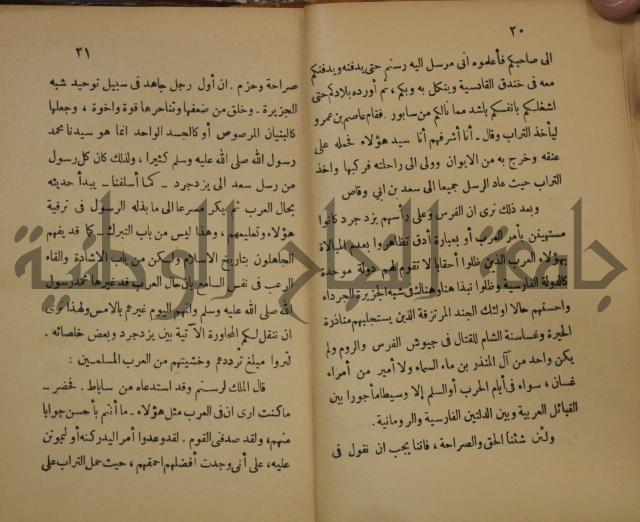 ٢٠
الى صاحبكم فأعلموه انى مرسل اليه رستم حتى يدفنه ويدفنكم
معه فى خندق القادسية وينكل به وبكم، ثم أورده بلادكم حتى
اشغلكم بأنفسكم باشد مما نالكم من سابور. فقام عاصم بن عمرو
ليأخذ التراب وقال ـ أنا أشرفهم أنا سيد هؤلاء فحمله على
عنقه وخرج به من الايوان وولى الى راحلته فركبها واخذ
التراب حيث عاد الرسل جميعا الى سعد بن ابي وقاص
وبعد ذلك نرى ان الفرس وعلى رأسهم يزدجرد كانوا
مستهينين بأمر العرب أو بعبارة أدق تظاهروا بعدم المبالاة
بهؤلاء العرب الذين ظلوا أحقابا لا تقوم لهم دولة موحدة
كالدولة الفارسية وظلوا نبذا هنا وهناك فى شبه الجزيرة الجرداء
واحسنهم حالا اولئك الجند المرتزقة الذين يستجلبهم مناذرة
الحيرة وغساسنة الشام للقتال فى جيوش الفرس والروم ولم
يكن واحد من آل المنذر بن ماء السماء ولا أمير من أمراء
غسان، سواء فى أيام الحرب أو السلم إلا وسيطا مأجورا بين
القبائل العربية وبين الدلتين الفارسية والرومانية.
ولئن شئنا الحق والصراحة، فاننا يجب ان نقول فى
٢١
صراحة وحزم. ان أول رجل جاهد فى سبيل توحيد شبه
الجزيرة ـ وخلق من ضعفها وتناحرها قوة واخوة، وجعلها
كالبنيان المرصوص أو كالجسد الواحد انما هو سيدنا محمد
رسول الله صلى الله عليه وسلم كثيرا، ولذلك كان كل رسول
من رسل سعد الى يزدجرد ـ كما أسلفنا ـ يبدأ حديثه
بحال العرب ثم يكر مسرعا الى ما بذله الرسول فى ترقية
هؤلاء وتعليمهم، وهذا ليس من باب التبرك ـ كما قد يفهم
الجاهلون بتاريخ الاسلام ولسكن من باب الاشادة والقاء
الرعب فى نفس السامع بان حال العرب قد غيرها محمد رسول
الله صلى الله عليه وسلم وأنهم اليوم غيرهم بالامس ولهذا نرى
ان ننقل لسكم المحاورة الآتية بين يزدجرد وبعض خلصائه.
لتروا مبلغ تردده وخشيتهم من العرب المسلمين:
قال الملك لرستم وقد استدعاه من ساباط. فحضر ـ
ما كنت ارى ان فى العرب مثل هؤلاء ـ ما أنتم بأحسن جوابا
منهم، ولقد صدقنى القوم. لقد وعدوا أمر اليدركنه أو ليموتن
عليه، على أنى وجدت أفضلهم احمقهم، حيث حمل التراب على
جامعة النجاح الوطنية